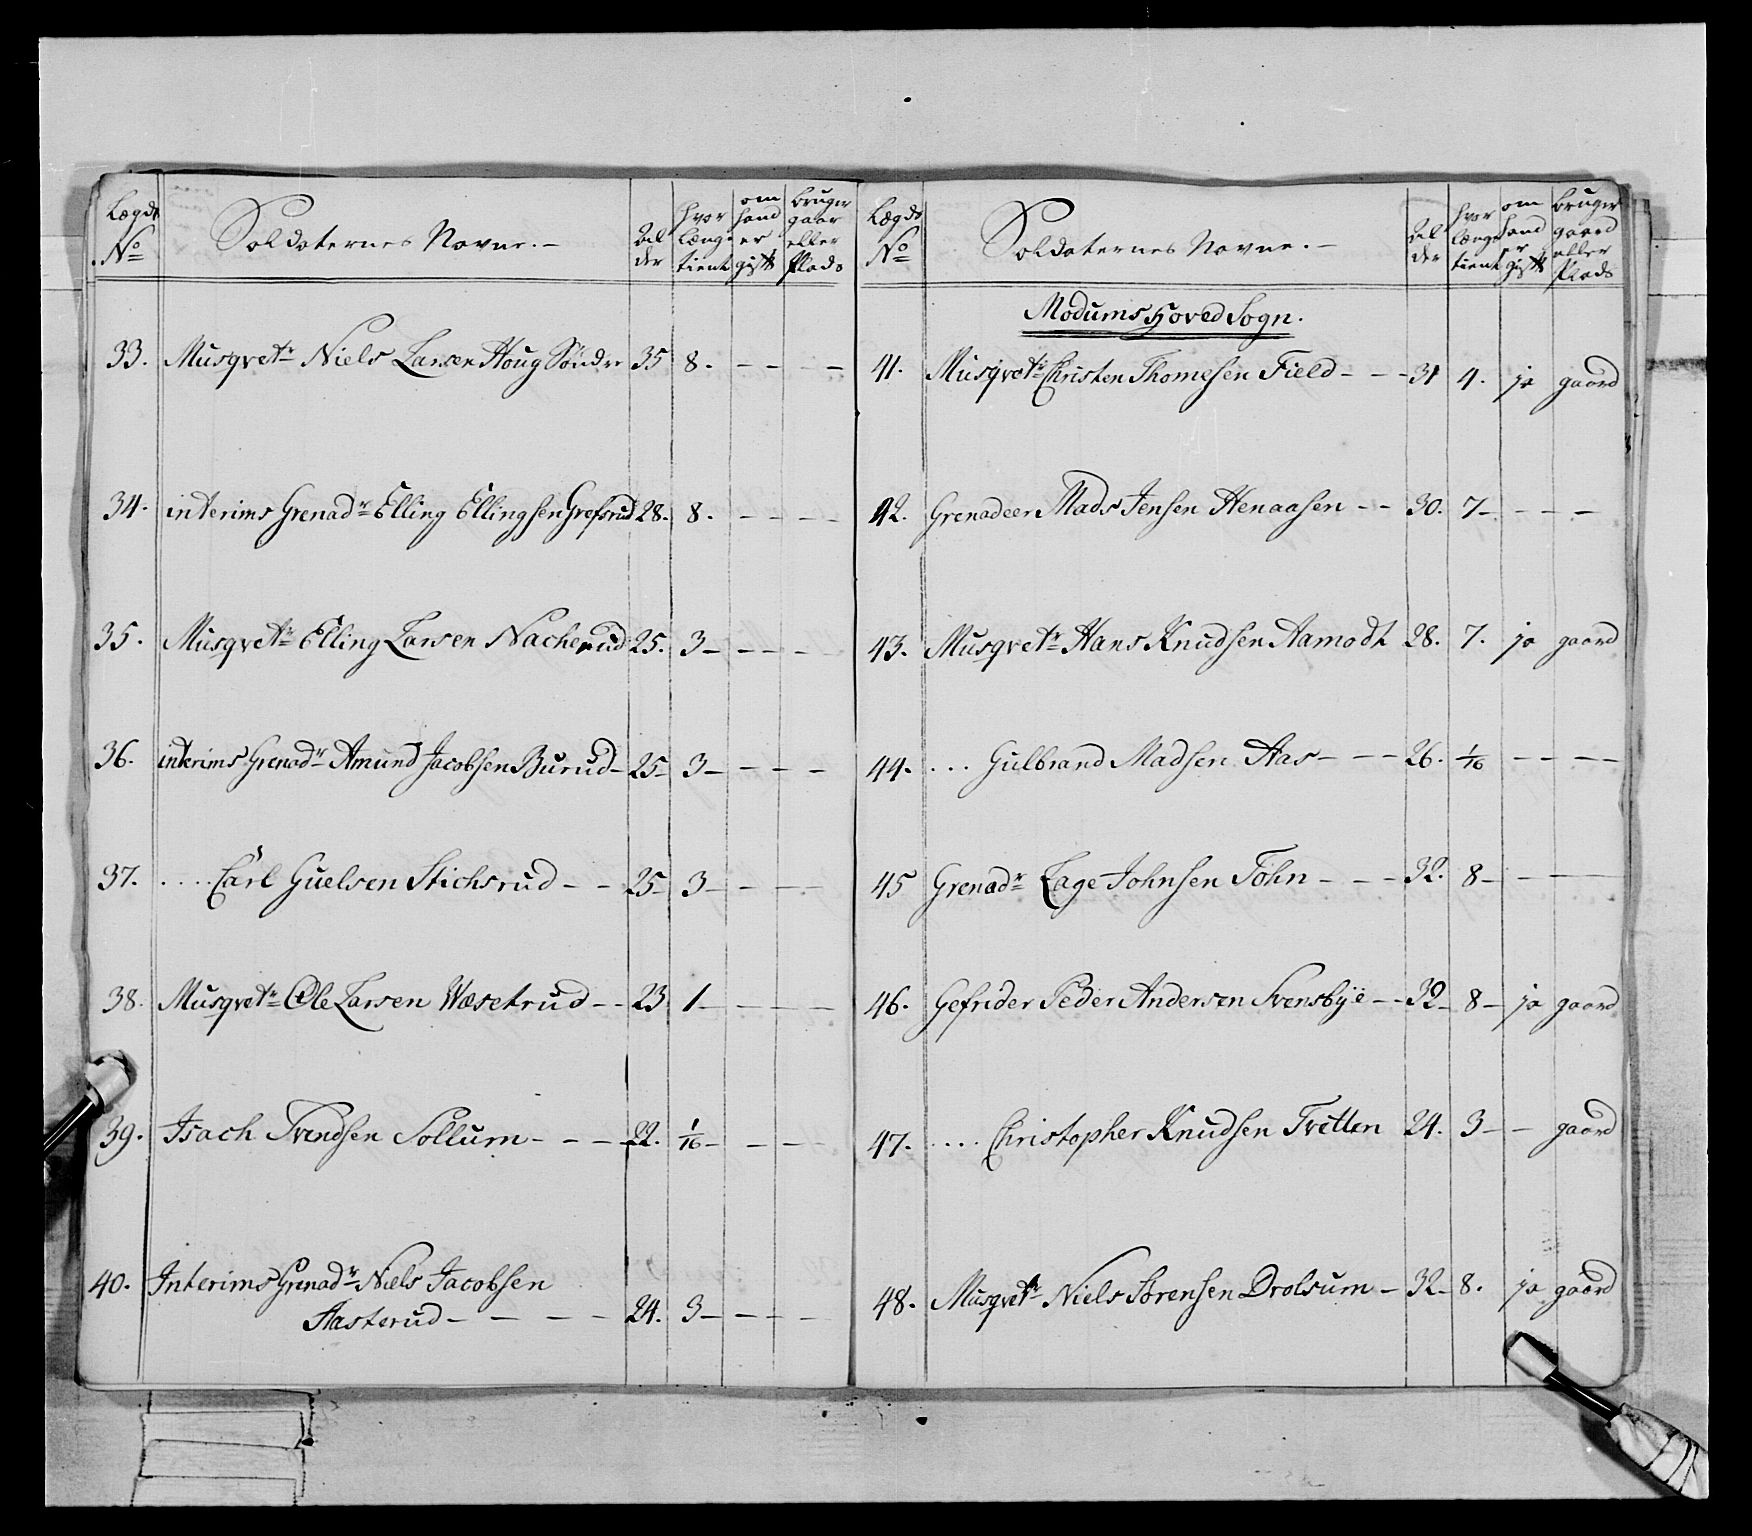 Lægds No Soldaternes Navne.— Alder hvor længe tient om hand er gift bruger gaar eller Plads
33. Musqvetr Niels Larsen Houg Søndre 35 8. — — — —
34. interims Grenadr Elling Ellingsen Grefsrud 28. 8. — — — —
35. Musqvetr Elling Larsen Nacherud 25. 3 — — — —
36. interims Grenadr Amund Jacobsen Burud — 25 — 3 — — — —
37. .... Carl Guelsen Stichsrud — — 25 — 3 — — — —
38. Musqvetr Ole Larsen Wæsetrud — — 23 1 — — — —
39. Isach Svendsen Sollum — — — 22. 1/16 — — — —
40. Interims Grenadr Niels Jacobsen
Aasterud — — — — 24. 3 — — — —
Lægds No Soldaternes Navne.— Alder hvor længe tient om hand er gift bruger gaard eller Plads
Modums Hoved Sogn.
41. Musqvetr Christen Thomesen Field — — — 31 4. ja gaard
42. Grenadeer Mads Jensen Henaasen — — 30. 7 — — — —
43. Musqvetr Hans Knudsen Aamodt 28. 7. ja gaard
44. ... Gulbrand Madsen Aas — — — 26. 1/16 — — — —
45 Grenadr Lage Johnsen Föhn — — — 32. 8 — — —
46. Gefrider Peder Andersen Svensbye — — 32 — 8 — ja gaard
47. .... Christopher Knudsen Tvetten 24. 3 — — gaard
48. Musqvetr Niels Sørensen Drolsum — 32 — 8. ja gaard